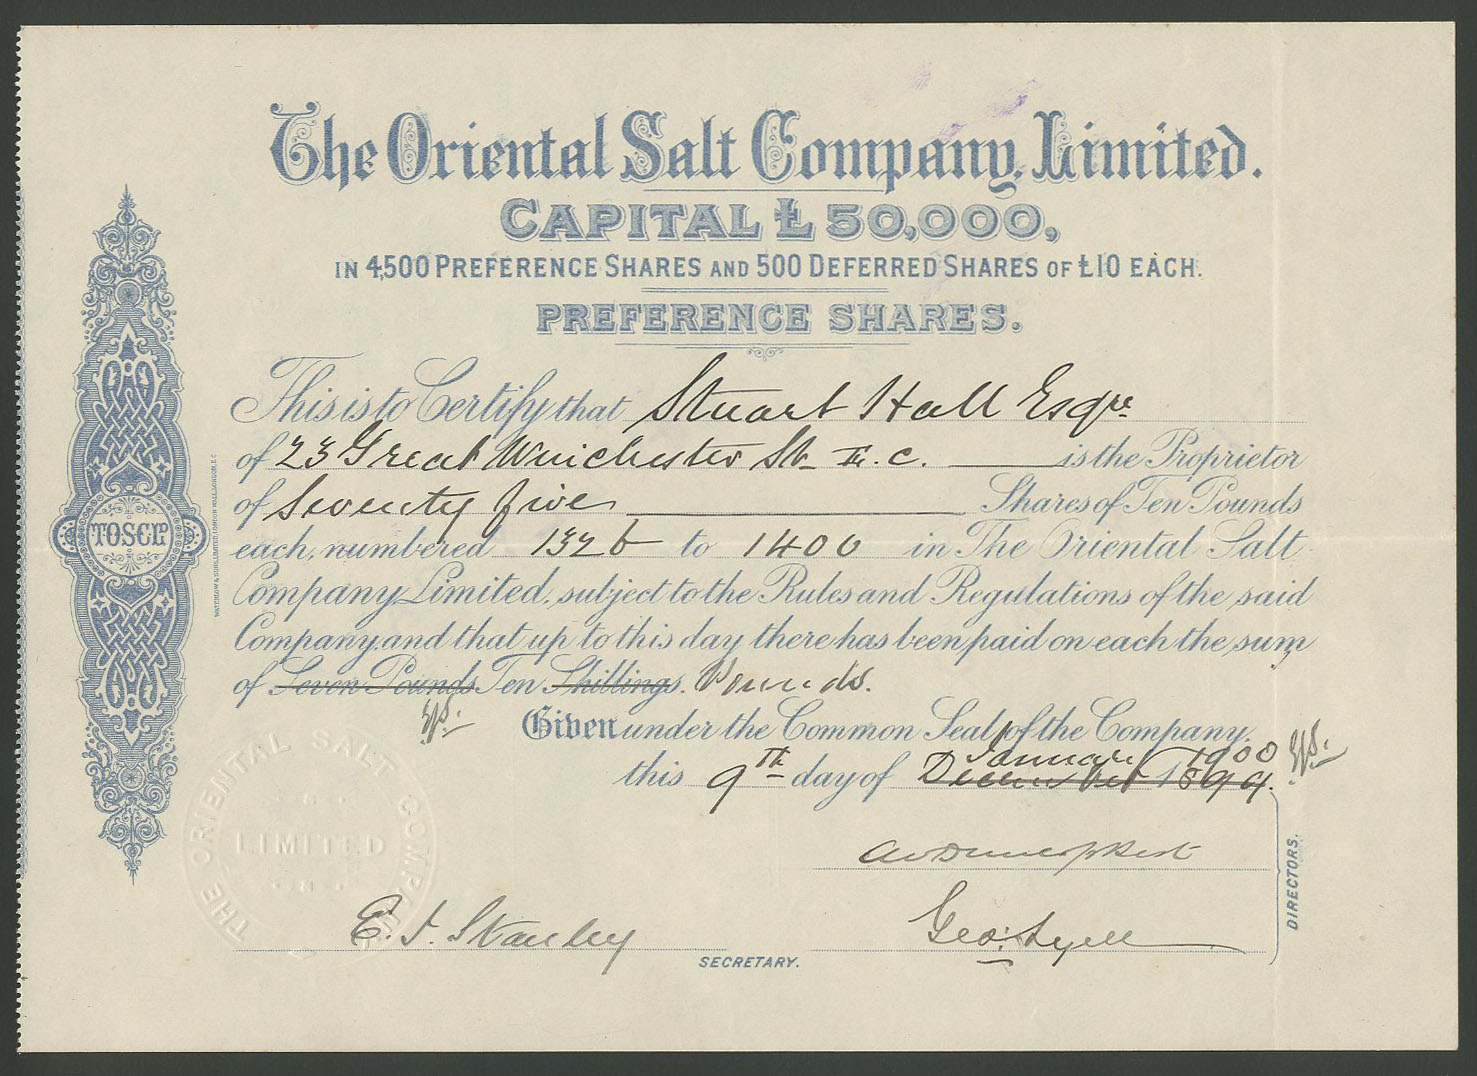 The Oriental Salt Company, Limited.
CAPITAL £50,000,
IN 4,500 PREFERENCE SHARES AND 500 DEFERRED SHARES OF £10 EACH.
PREFERENCE SHARES.
This is to Certify that Stuart Hall Esqre
of 23 Great Winchester St. E.C. is the Proprietor
of Seventy five Shares of Ten Pounds
each, numbered 1326 to 1400 in The Oriental Salt
Company, Limited, subject to the Rules and Regulations of the said
Company, and that up to this day there has been paid on each the sum
of Seven Pounds Ten Shillings. Pounds.
Given under the Common Seal of the Company,
January 1900
this 9th day of December 1899.
Geo: Lyell
DIRECTORS.
E. J. Stanley
SECRETARY.
TOSCLD
WATERLOW & SONS LIMITED, LONDON WALL, LONDON, E.C.
THE ORIENTAL SALT COMPANY
LIMITED